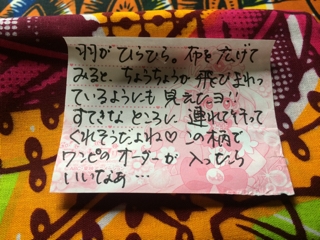 羽がひらひら。布を広げて
みると、ちょうちょうが飛びまわっ
ているようにも見えたヨ!!
すてきなところに連れてそって
くれそうだよね♡この柄で
ワンピのオーダーが入ったら
いいなぁ…